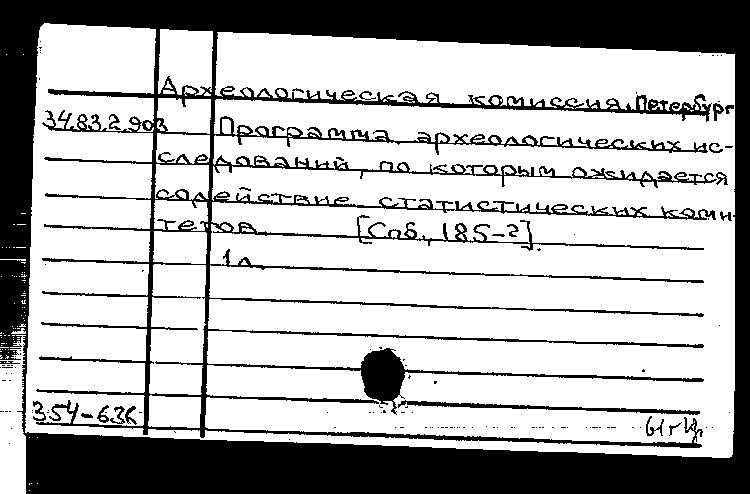 Археологическая комиссия. Петербург
34.83.2.903 Программа археологических ис-
следований, по которым ожидается
содействие статистических коми-
тетов. [Спб., 185-?].
1 л.
354-63к